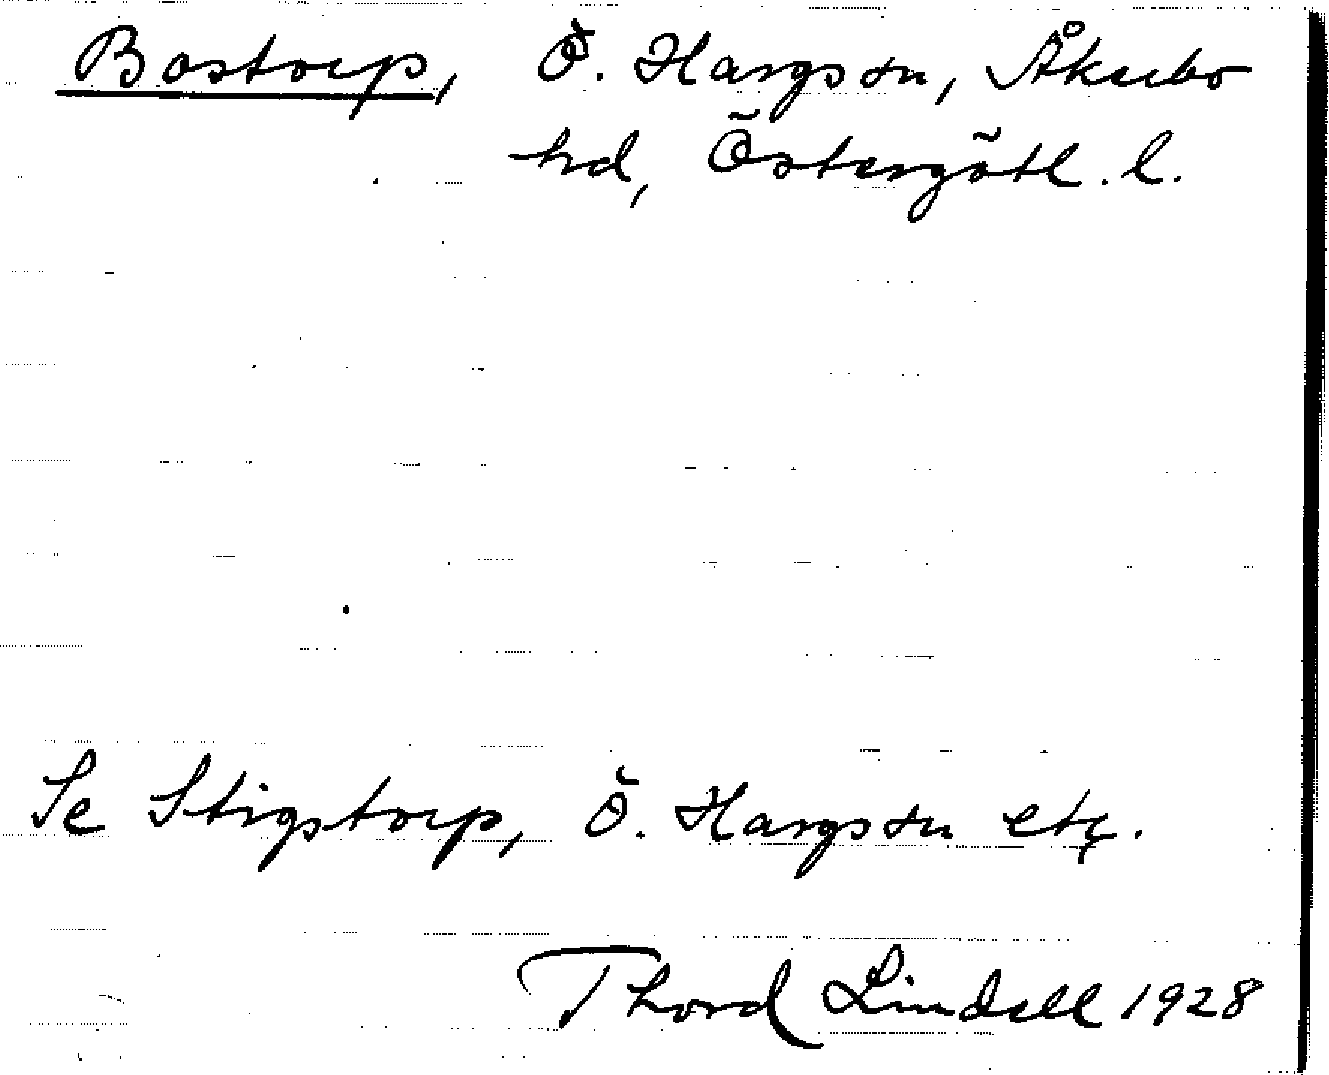 Bostorp, Ö. Hargs sn, Åkerbo
hd, Östergötl. l.
Se Stigstorp, Ö. Hargs sn etc.
Thord Lindell 1928